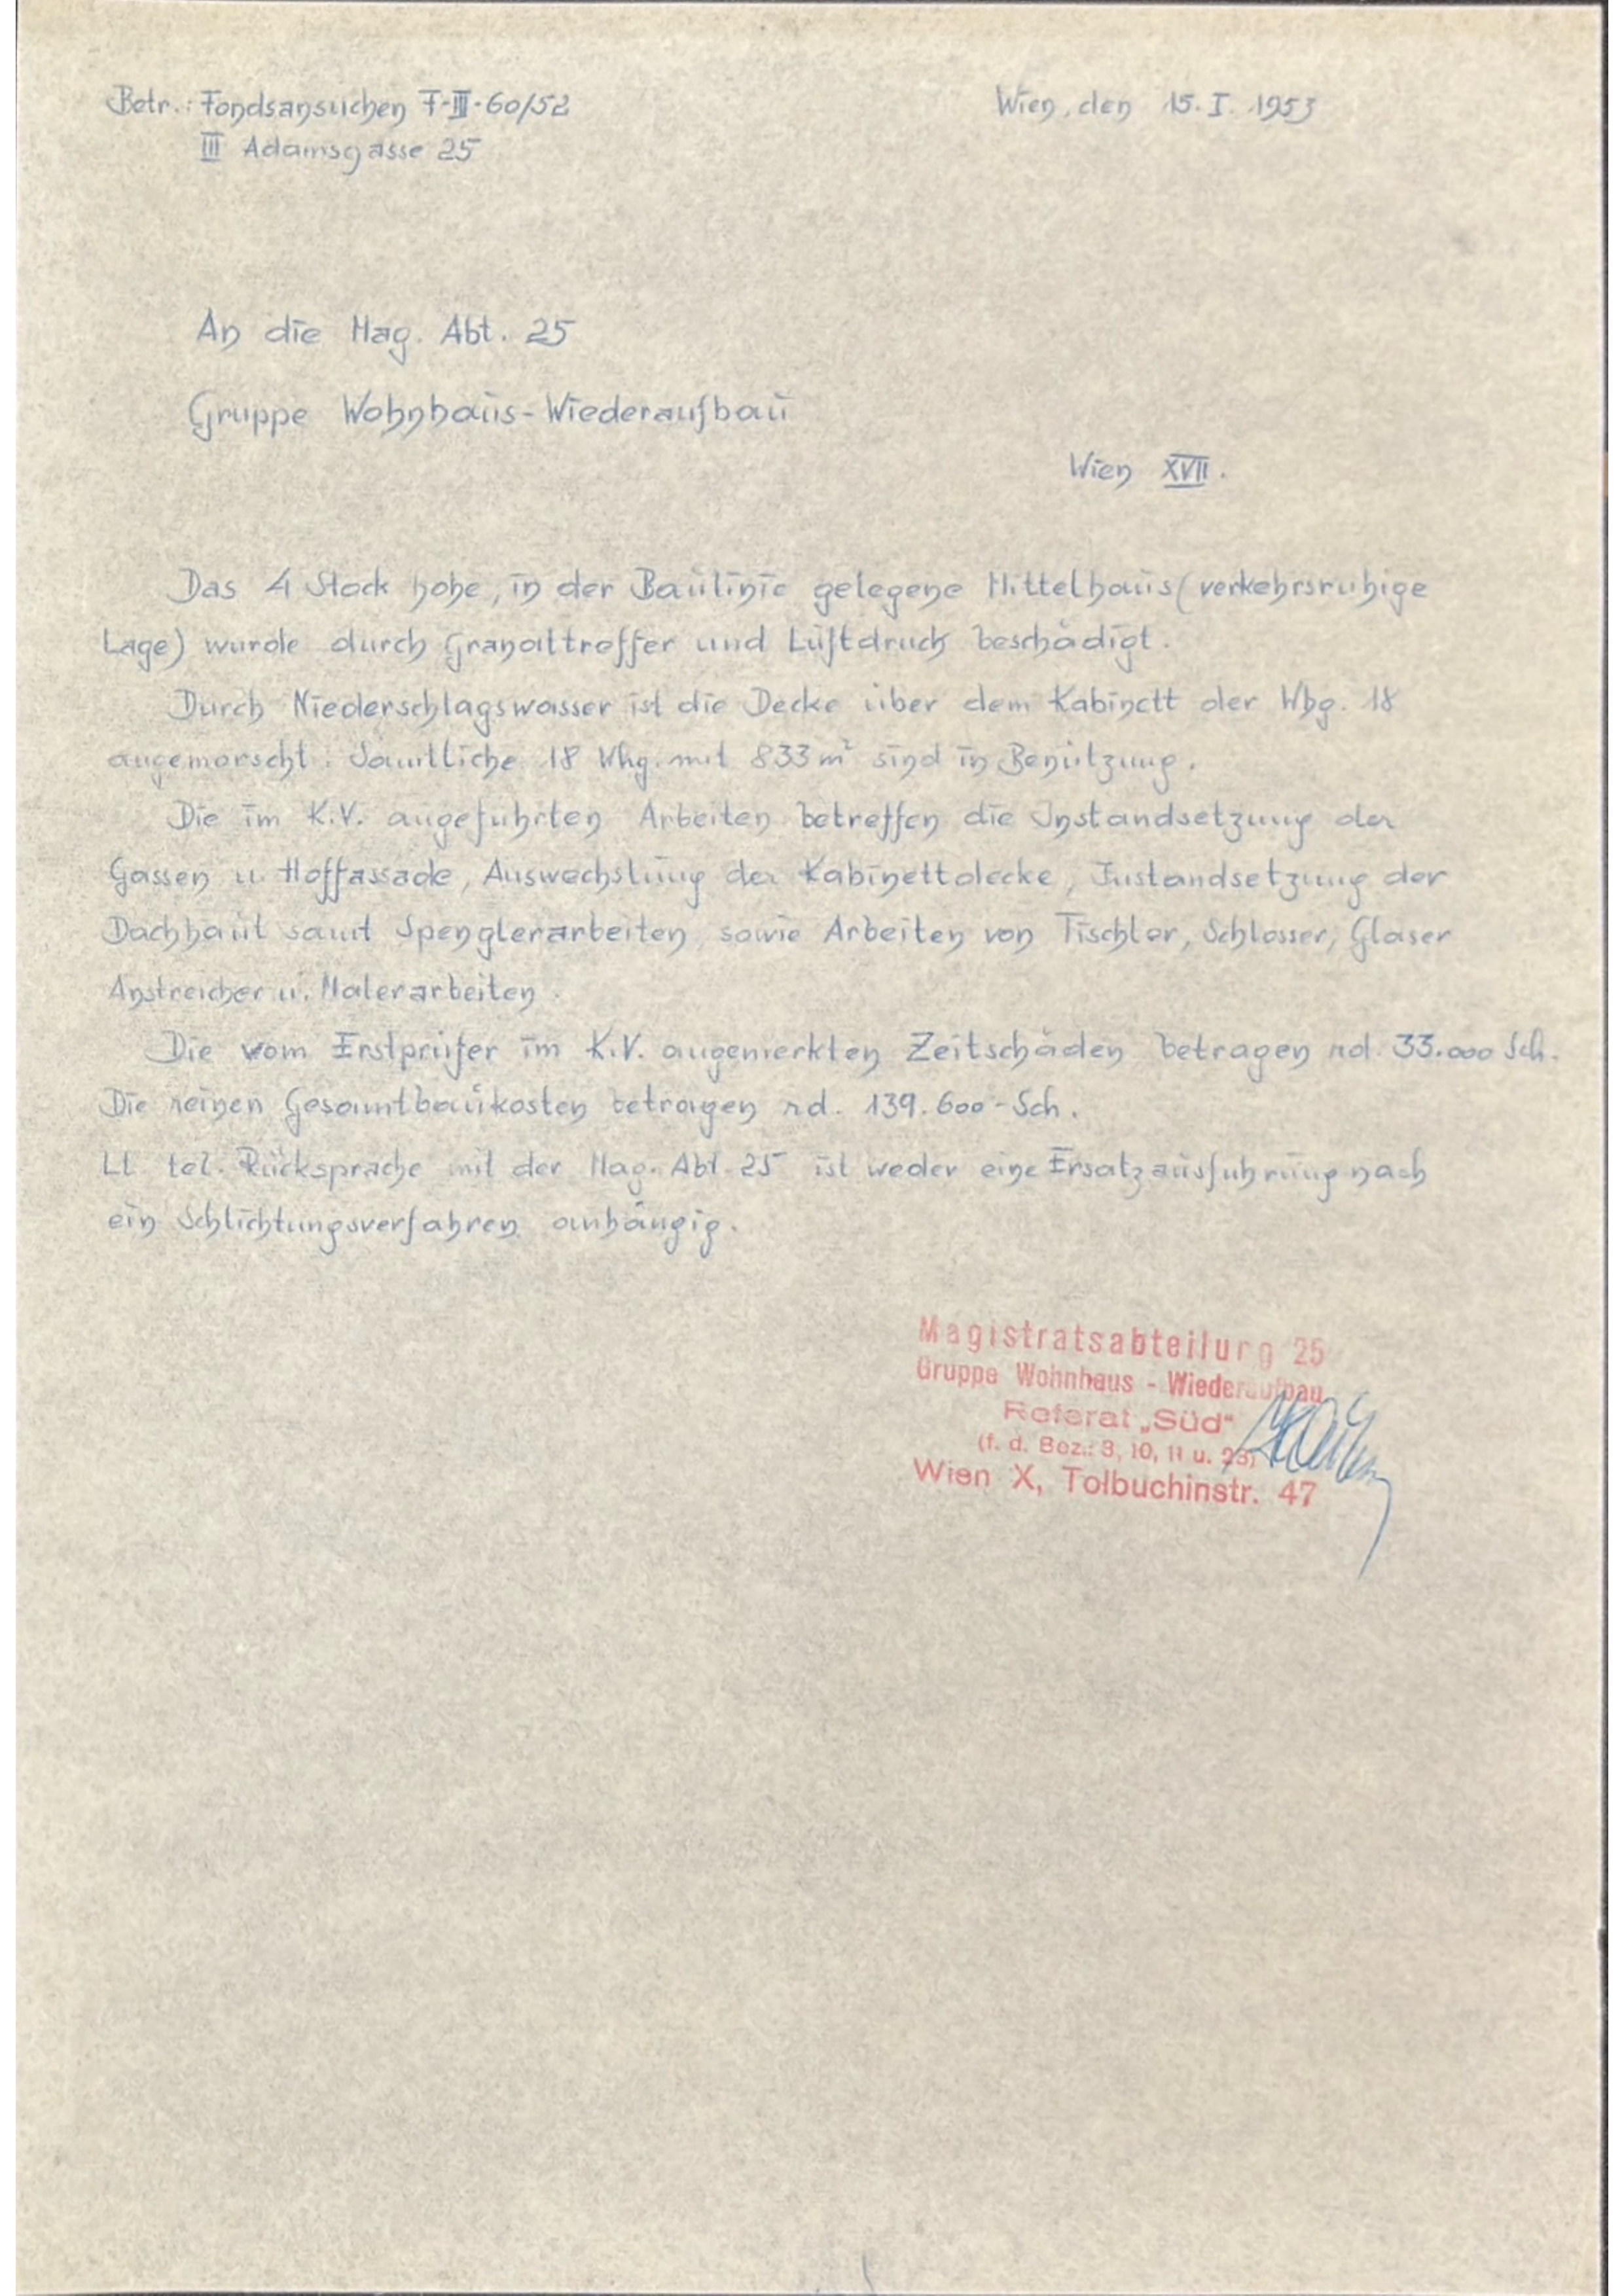 Betr.: Fondsansuchen F-III-60/52
III Adamsgasse 25
Wien, den 15. I. 1953
An die Mag. Abt. 25
Gruppe Wohnhaus-Wiederaufbau
Wien XVII.
Das 4 Stock hohe, in der Baulinie gelegene Mittelhaus (verkehrsruhige
Lage) wurde durch Granattreffer und Luftdruck beschädigt.
Durch Niederschlagswasser ist die Decke über dem Kabinett der Whg. 18
angemorscht. Sämtliche 18 Whg. mit 833 m² sind in Benützung.
Die im K.V. angeführten Arbeiten betreffen die Instandsetzung der
Gassen u. Hoffassade, Auswechslung der Kabinettdecke, Instandsetzung der
Dachhaut samt Spenglerarbeiten, sowie Arbeiten von Tischler, Schlosser, Glaser
Anstreicher u. Malerarbeiten.
Die vom Erstprüfer im K.V. angemerkten Zeitschäden betragen rd. 33.000 Sch.
Die reinen Gesamtbaukosten betragen rd. 139.600 - Sch.
Lt. tel. Rücksprache mit der Mag. Abt. 25 ist weder eine Ersatzausführung nach
ein Schlichtungsverfahren anhängig.
Magistratsabteilung 25
Gruppe Wohnhaus - Wiederaufbau
Referat „Süd"
(f. d. Bez.: 3, 10, 11 u. 23)
Wien X, Tolbuchinstr. 47